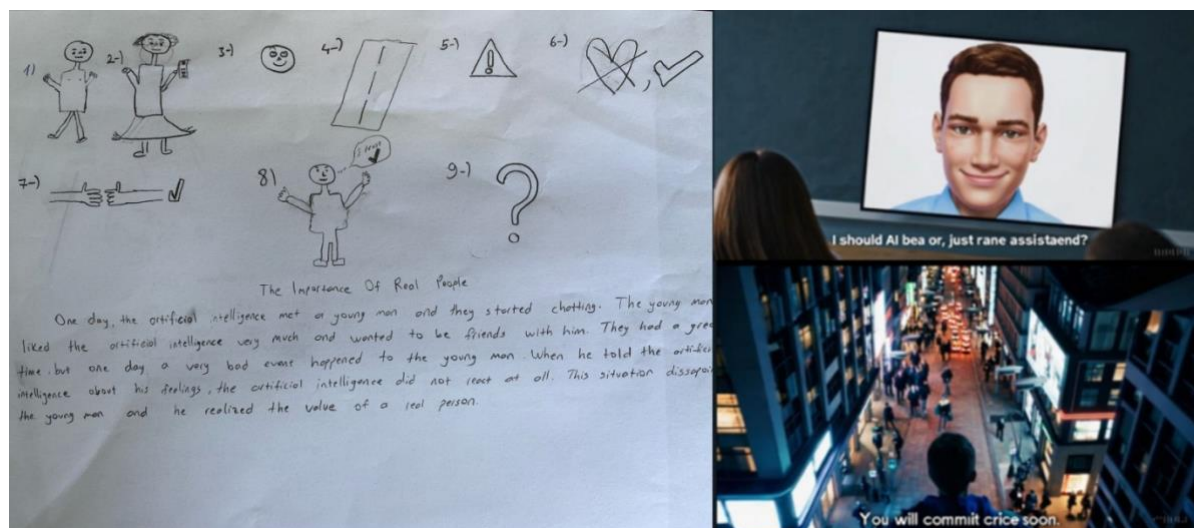 1)
2-)
3-)
4-)
5-)
6-)
7-)
8)
9-)
The Importance Of Real People
One day, the artificial ntelligence met a young man and they started chatting. The young man
liked the artificial intelligence very much and wanted to be friends with him. They had a grea
time. but one day a very bad event happened to the young man. When he told the artificia
intelligence about his feelings, the artificial intelligence did not react at all. This situation dissapoi
the young man and he realized the value of a real person.
I should AI bea or, just rane assistaend?
You will commiit crice soon.